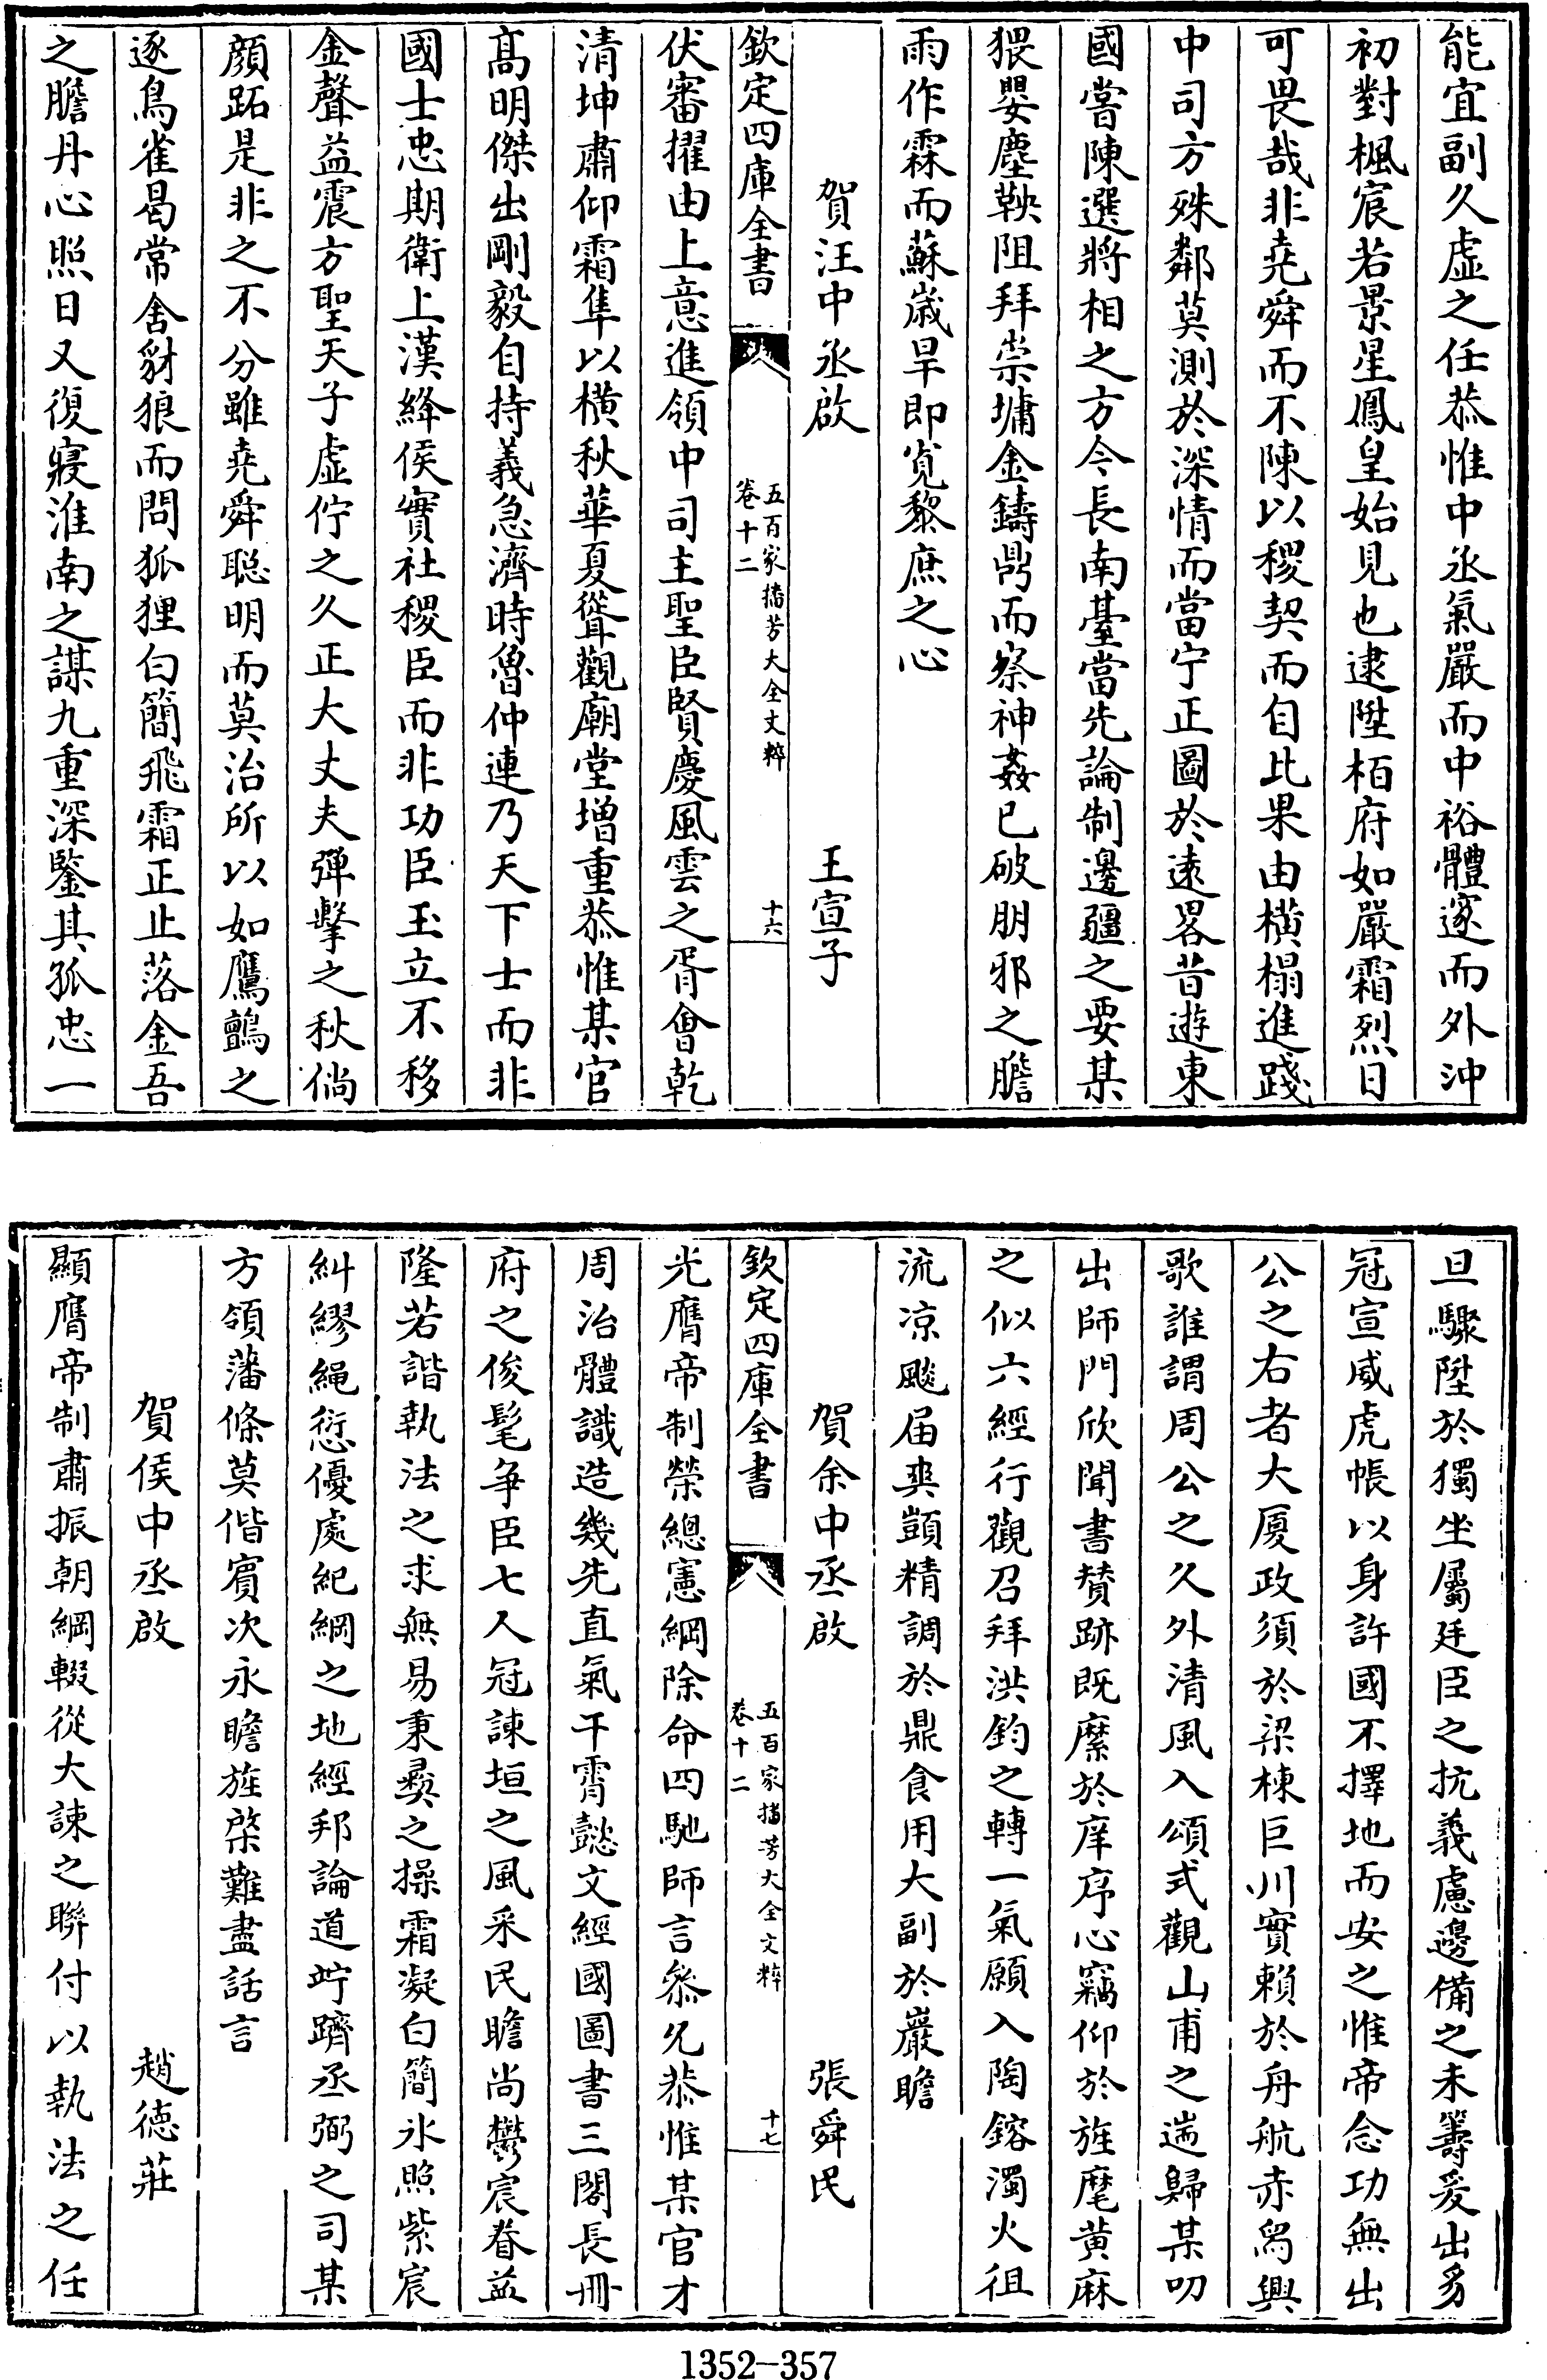 能宜副久虛之任恭惟中丞氣嚴而中裕體邃而外沖
初對楓宸若景星鳳皇始見也逮陞栢府如嚴霜烈日
可畏哉非堯舜而不陳以稷契而自比果由橫榻進踐
中司方殊鄰莫測於深情而當宁正圖於逺畧昔遊東
國嘗陳選將相之方今長南臺當先論制邊疆之要某
猥嬰塵鞅阻拜崇墉金鑄鼎而察神姦已破朋邪之膽
雨作霖而蘇歲旱即寛黎庶之心
賀汪中丞啟 王宣子
欽定四庫全書 五百家播芳大全文粹 卷十二 十六
伏審擢由上意進領中司主聖臣賢慶風雲之胥會乾
清坤肅仰霜隼以橫秋華夏聳觀廟堂増重恭惟某官
髙明傑出剛毅自持義急濟時魯仲連乃天下士而非
國士忠期衛上漢絳侯實社稷臣而非功臣玉立不移
金聲益震方聖天子虛佇之久正大丈夫彈擊之秋倘
顔跖是非之不分雖堯舜聡明而莫治所以如鷹鸇之
逐鳥雀曷常舍豺狼而問狐狸白簡飛霜正止落金吾
之膽丹心照日又復寢淮南之謀九重深鑒其孤忠一
旦驟陞於獨坐屬廷臣之抗義慮邊備之未籌爰出豸
冠宣威虎帳以身許國不擇地而安之惟帝念功無出
公之右者大厦政須於梁棟巨川實賴於舟航赤舄興
歌誰謂周公之久外清風入頌式觀山甫之遄歸某叨
出師門欣聞書賛跡既縻於庠序心竊仰於旌麾黄麻
之似六經行觀召拜洪鈞之轉一氣願入陶鎔濁火徂
流凉颷届爽顗精調於鼎食用大副於巖瞻
賀余中丞啟 張舜民
欽定四庫全書 五百家播芳大全文粹 卷十二 十七
光膺帝制榮總憲綱除命四馳師言叅允恭惟某官才
周治體識造幾先直氣干霄懿文經國圖書三閣長冊
府之俊髦爭臣七人冠諫垣之風采民瞻尚鬱宸眷益
隆若諧執法之求無易秉彛之操霜凝白簡氷照紫宸
糾繆繩愆優處紀綱之地經邦論道竚躋丞弼之司某
方領藩條莫偕賓次永瞻旌棨難盡話言
賀侯中丞啟 趙德莊
顯膺帝制肅振朝綱輟從大諫之聯付以執法之任
1352-357